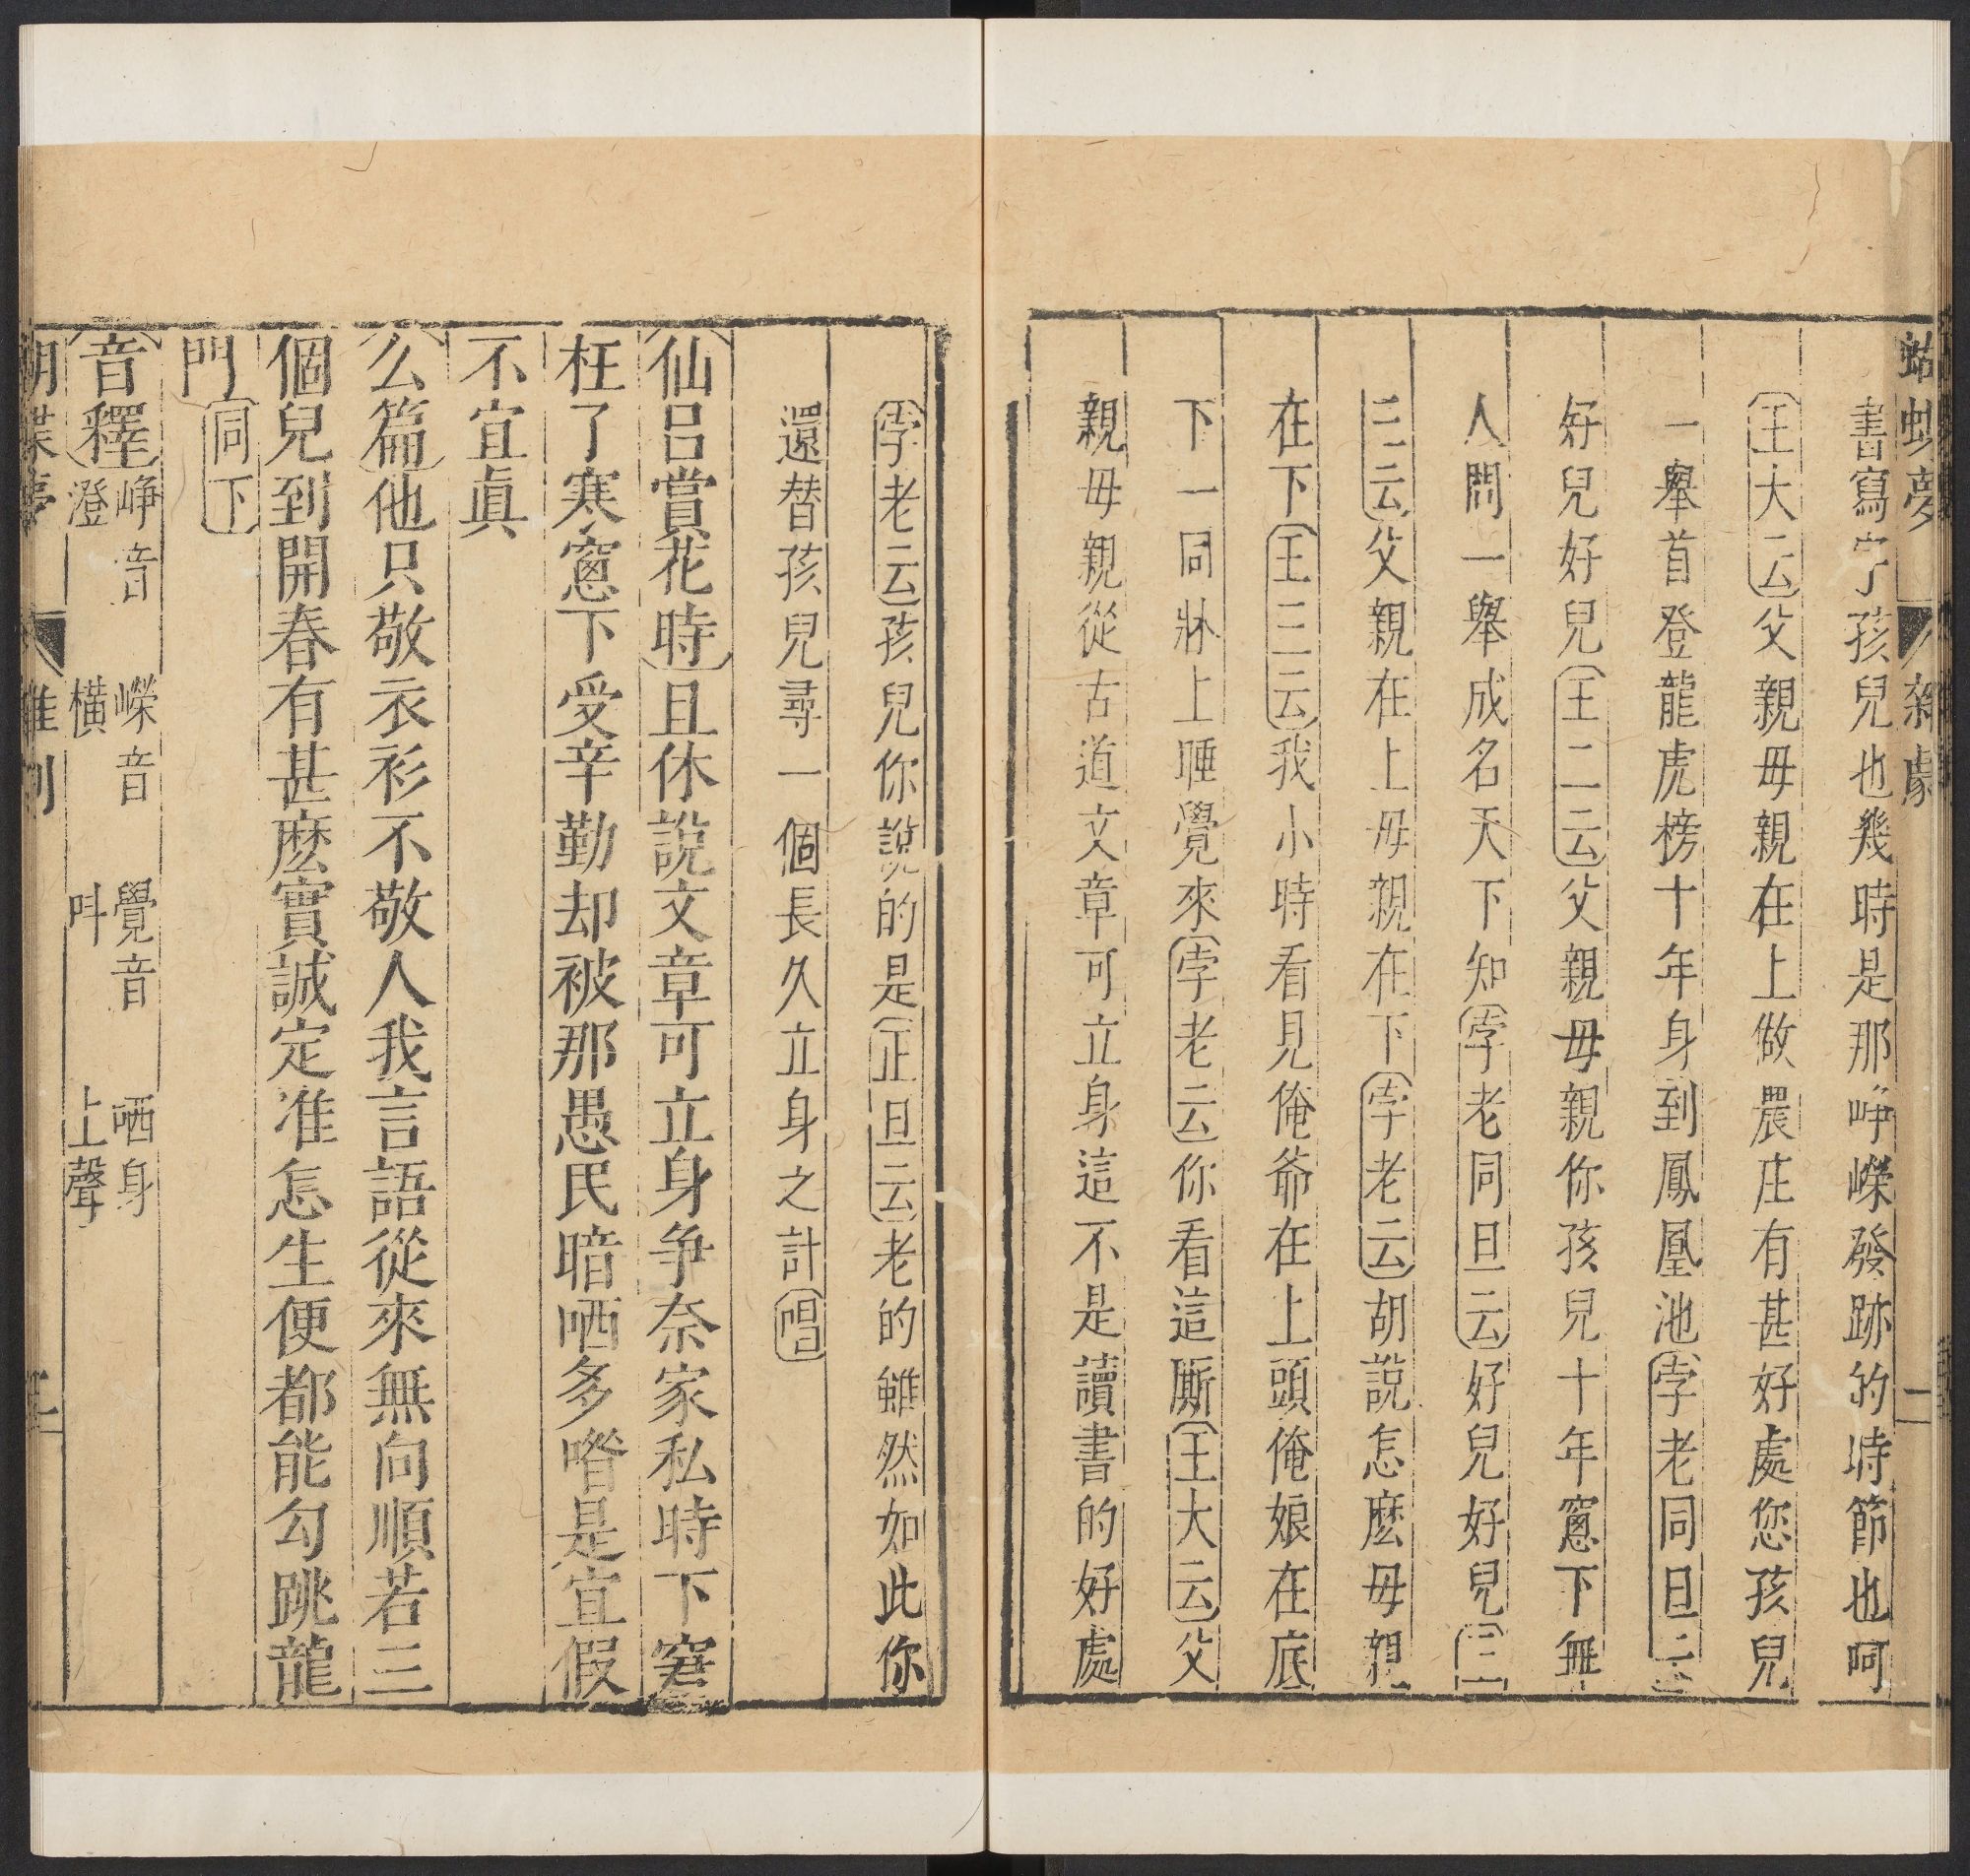 蝴蝶夢 雜劇 二
書寫字孩兒也幾時是那崢嶸發跡的時節也呵
王大云父親母親在上做農庄有甚好處您孩兒
一舉首登龍虎榜十年身到鳳凰池孛老同旦云
好兒好兒王二云父親母親你孩兒十年窻下無
人問一舉成名天下知孛老同旦云好兒好兒王
三云父親在上母親在下孛老云胡說怎麽母親
在下王三云我小時看見俺爺在上頭俺娘在底
下一同牀上睡覺來孛老云你看這厮王大云父
親母親從古道文章可立身這不是讀書的好處
孛老云孩兒你說的是正旦云老的雖然如此你
還替孩兒尋一個長久立身之計唱
仙呂賞花時且休說文章可立身争奈家私時下窘
枉了寒窻下受辛勤却被那愚民暗哂多喒是宜假
不宜眞
么篇他只敬衣衫不敬人我言語從來無向順若三
個兒到開春有甚麽實誠定准怎生便都能勾跳龍
門同下
音釋崢音澄 嶸音橫 覺音呌 哂身上聲